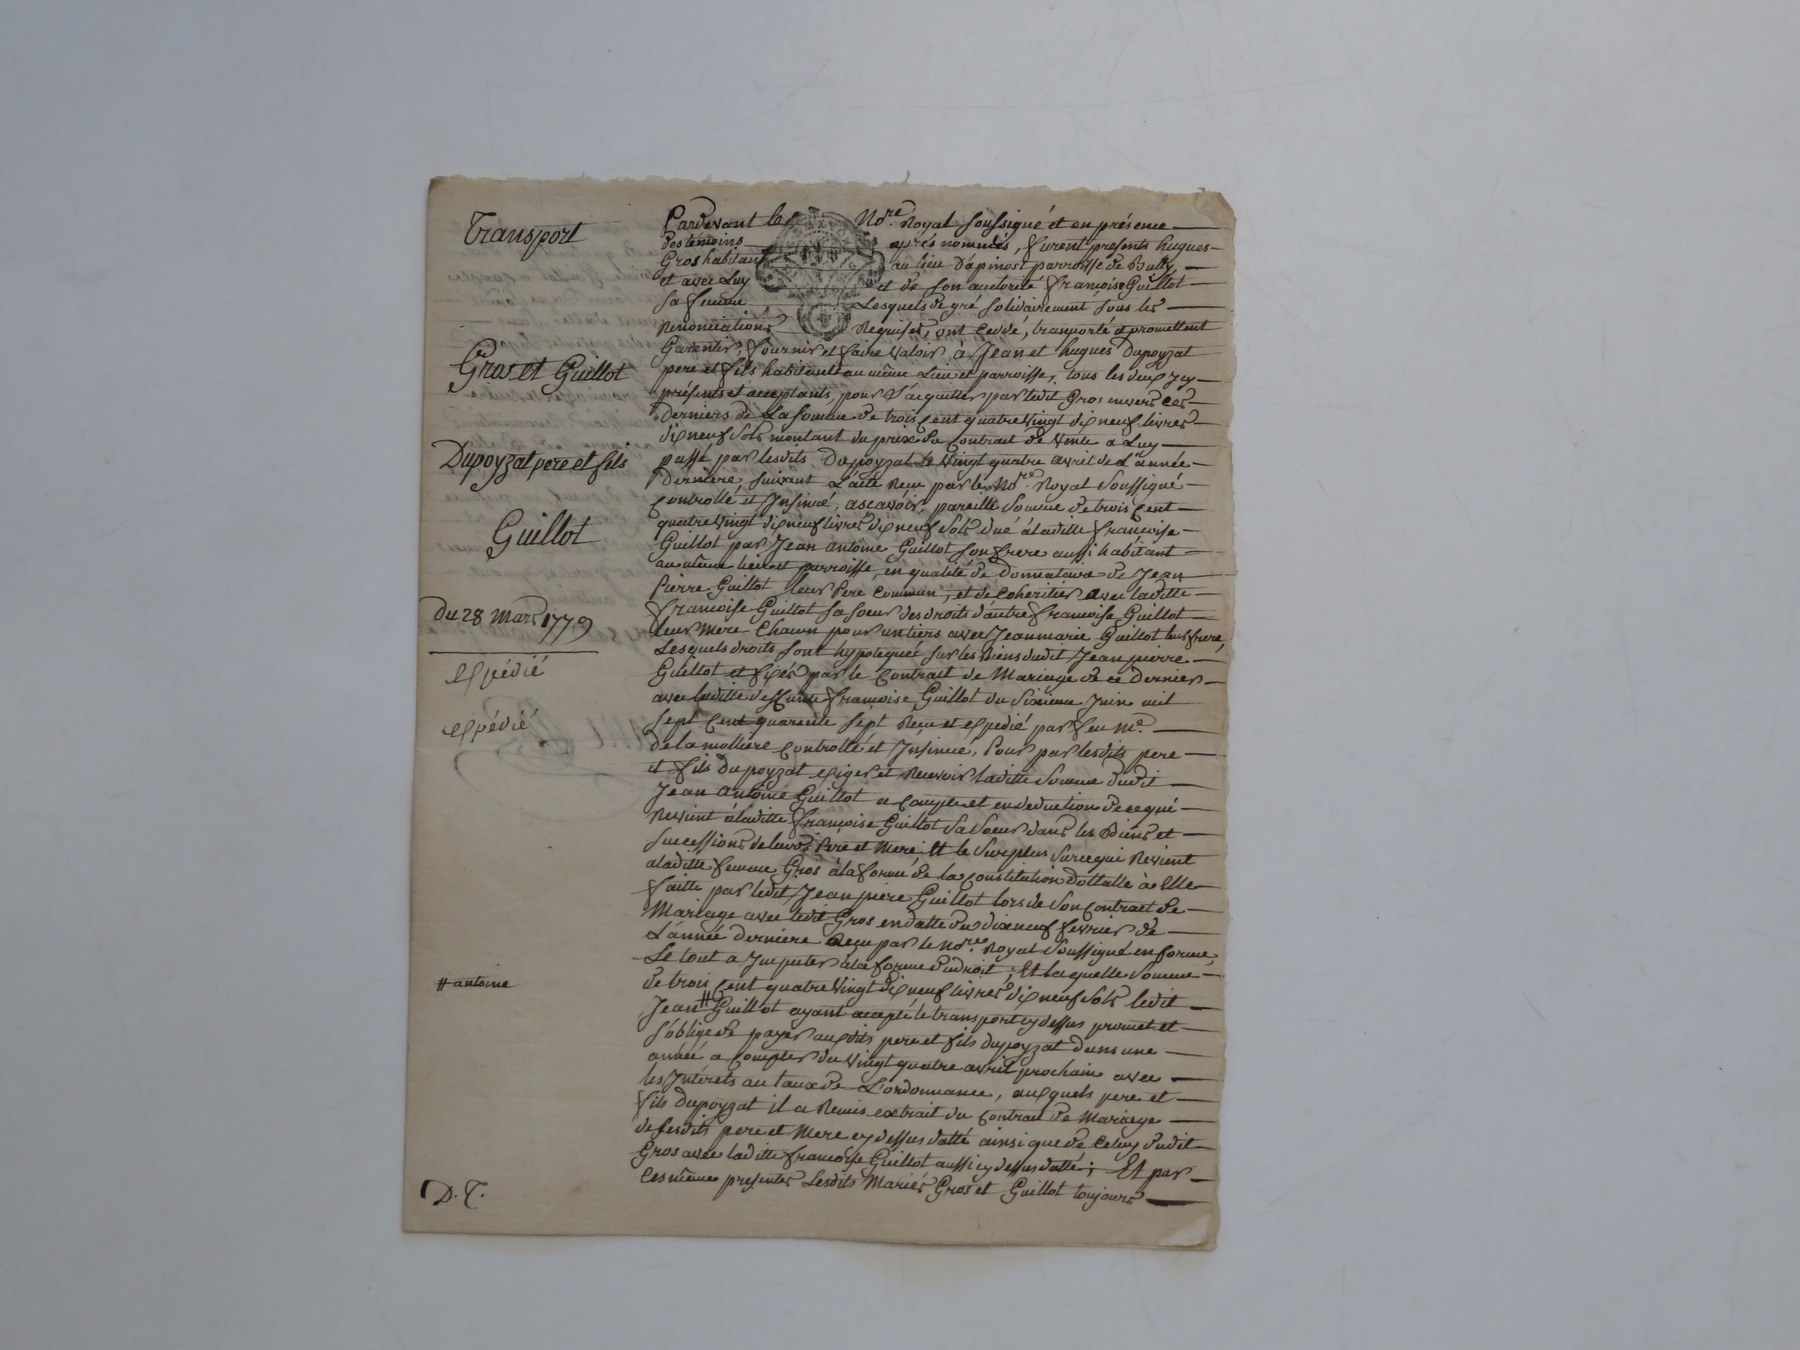 Transport
Gros et Guillot
Dupoyzat pere et fils
Guillot
Du 28 Mars 1779
expédié
expédié
# antoine
D. T.
Pardevant le Nore. Royal soussigné et en présence
des temoins après nommés, furent presents hugues
Gros habitant au lieu D'apinost parroisse de Bully,
et avec Luy et de son authorité françoise Guillot
sa femme Lesquels de gré solidairement sous les
Renonciations Requises, ont cedé, transporté et promettent
Garentir, fournir et faire valoir, à Jean et hugues Dupoyzat
pere et fils habitant au même Lieu et parroisse, tous les deux Icy
présents et acceptants, pour S'acquitter par ledit Gros envers ces
Derniers de La somme de trois cent quatre vingt dix neuf livres
dix neuf sols montant du prix du Contrat de vente a Luy
passé par lesdits Dupoyzat le vingt quatre avril de L'année
Derniere, suivant L'acte Reçu par le Nore. Royal Soussigné
Controllé et Insinué, ascavoir pareille Somme de trois cent
quatre vingt dix neuf livres dix neuf sols dué à laditte françoise
Guillot par Jean antoine Guillot son frere aussi habitant
au même lieu et parroisse, en qualité de Donnataire de Jean
Pierre Guillot leur Pere Commun, et de Coheritier avec laditte
françoise Guillot sa soeur des droits d'autre françoise Guillot
leur Mere Chacun pour un tiers avec Jeanmarie Guillot leur frere,
Lesquels droits sont hypotequés sur les Biens dudit Jean pierre
Guillot et fixés par le Contrat de Mariage de ce Dernier
avec laditte deffunte françoise Guillot du Sixieme Juin mil
sept cent quarente sept Reçu et expedié par feu Me.
delamolliere Controllé et Insinué, Pour par lesdits pere
et fils dupoyzat exiger et Recevoir laditte Somme dudit
Jean antoine Guillot a Compte et en deduction de ce qui
Revient à laditte françoise Guillot Sa Soeur dans les Biens et
successions de leurs Pere et Mere; et le Surplus sur ce qui Revient
a laditte femme Gros à la forme de la Constitution dottalle à elle
faitte par ledit Jean piere Guillot lors de Son Contrat de
Mariage avec ledit Gros en datte du dixneuf fevrier de
L'année derniere Reçu par le Nore. Royal Soussigné en forme,
Le tout a Imputer à la forme du droit; Et laquelle Somme
de trois cent quatre vingt dix neuf livres dix neuf sols ledit
Jean # Guillot ayant accepté le transport cy dessus promet et
S'oblige de payer auxdits pere et fils dupoyzat dans une
année a Compter du vingt quatre avril prochain avec
les Intérets au taux de L'ordonnance, auxquels pere et
fils Dupoyzat il a Remis extrait du Contrat de Mariage
de sesdits pere et Mere cy dessus datté ainsi que de Celuy dudit
Gros avec laditte françoise Guillot aussi cy dessus datté; Et par
Ces mêmes presentes Lesdits Mariés Gros et Guillot toujours